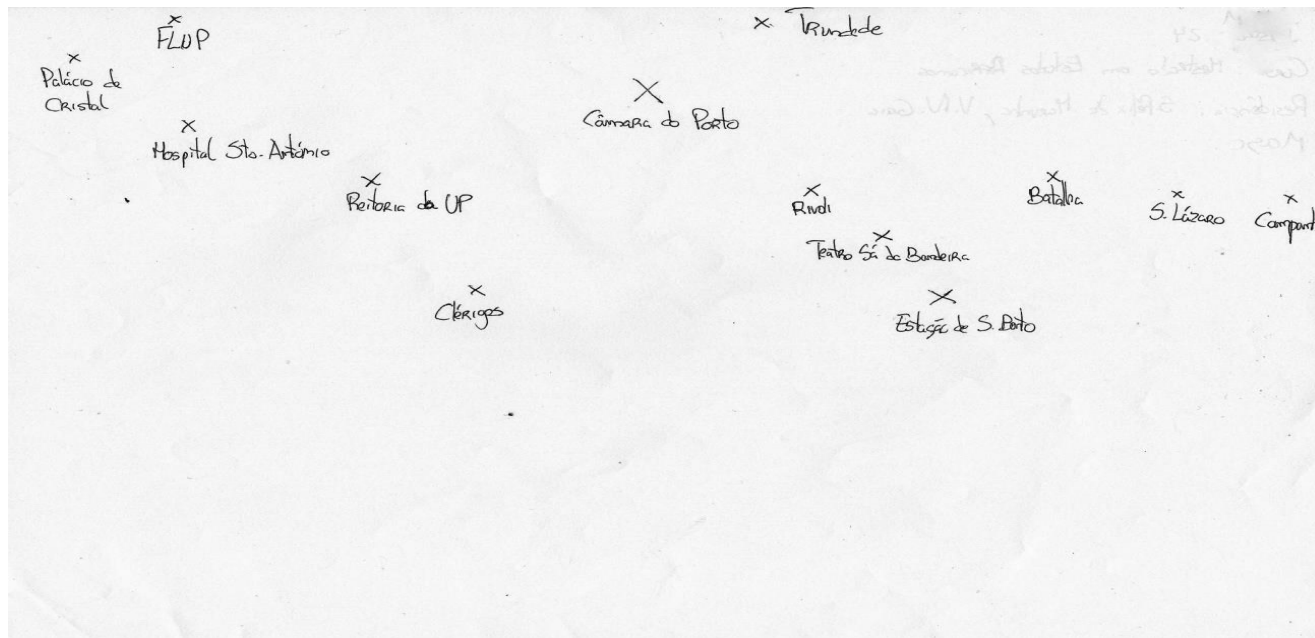 FLUP
Trindade
Palácio de
Cristal
Câmara do Porto
Hospital Sto. António
Reitoria da UP
Rivoli
Batalha
S. Lázaro
Campanh
Teatro Sá da Bandeira
Clérigos
Estação de S. Bento